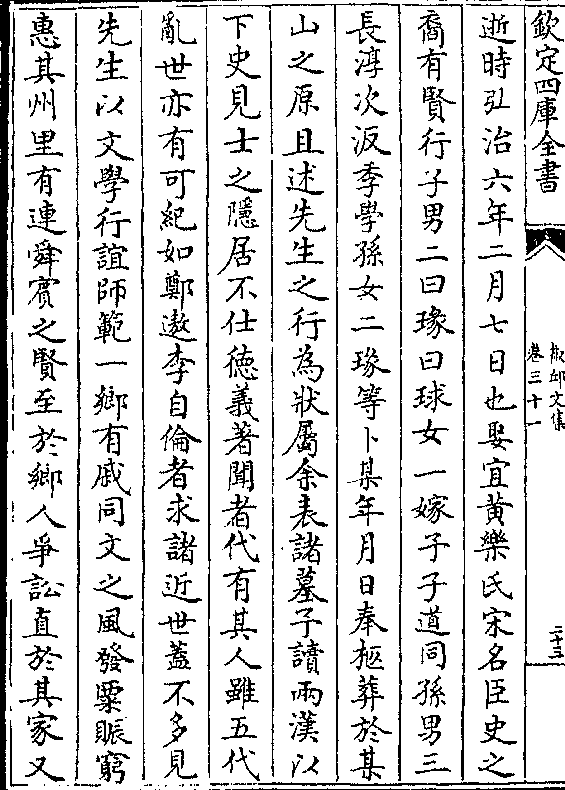 欽定四庫全書
椒邱文集
卷三十一
二十三
逝時弘治六年二月七日也娶宜黄樂氏宋名臣史之
裔有賢行子男二曰瑑曰球女一嫁子子道同孫男三
長淳次汳季學孫女二瑑等卜某年月日奉柩葬於某
山之原且述先生之行為狀屬余表諸墓予讀兩漢以
下史見士之隱居不仕徳義著聞者代有其人雖五代
亂世亦有可紀如鄭遨李自倫者求諸近世葢不多見
先生以文學行誼師範一鄉有戚同文之風發粟賑窮
惠其州里有連舜賓之賢至於鄉人爭訟直於其家又